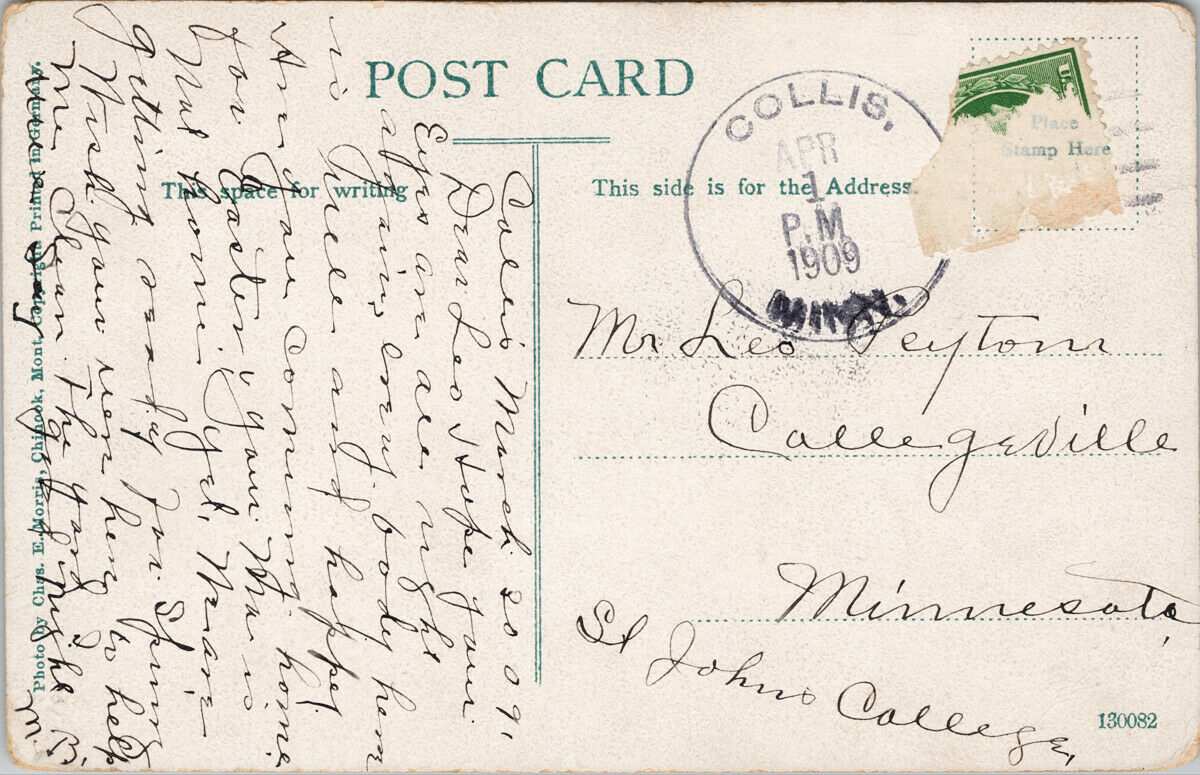 POST CARD
This space for writing
This side is for the Address.
Place
Stamp Here
U.S.
COLLIS,
APR
1
P.M.
1909
MINN.
Mr Leo Peyton
Collegeville
Minnesota,
St Johns College,
130082
Photo by Chas. E. Morris, Chinook, Mont. Copyright Printed in Germany.
Collis March 30 09,
Dear Leo Hope your
Eyes are all right
again, every body here
is well and happy.
Are you coming home
for Easter, your Ma is
Not home yet, We are
getting ready for
Wish you were here to help
me